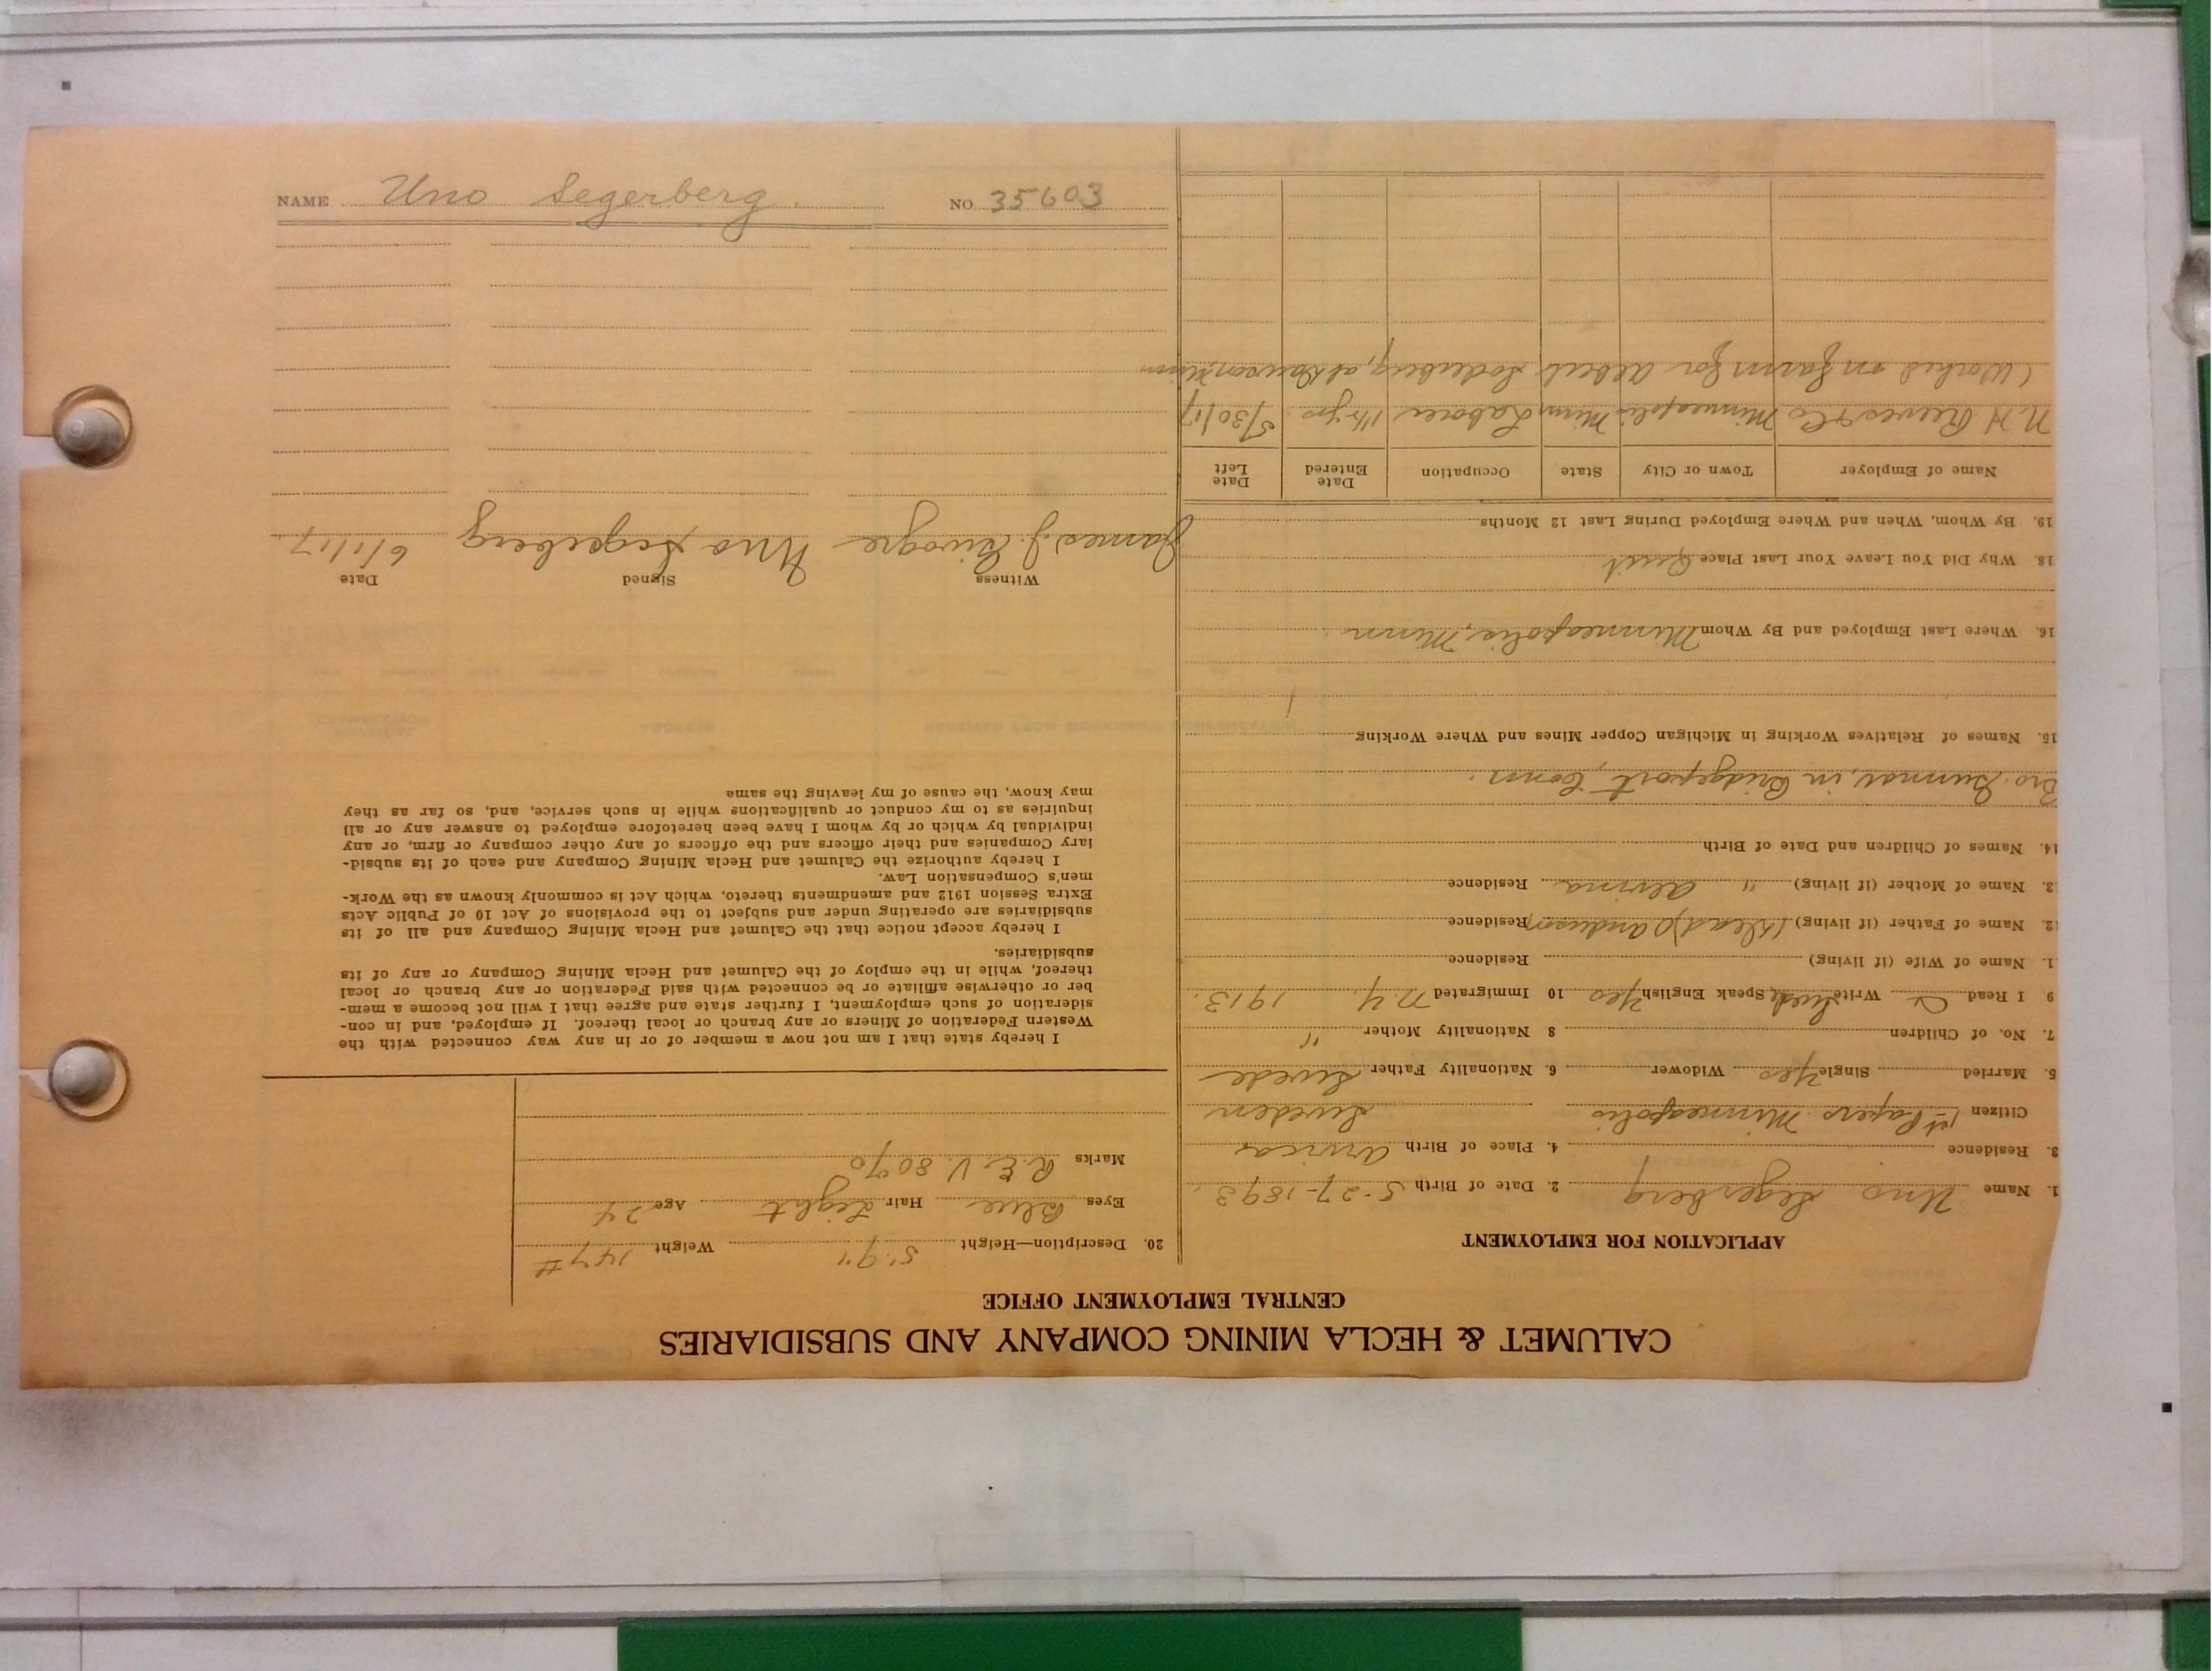 CALUMET & HECLA MINING COMPANY AND SUBSIDIARIES
CENTRAL EMPLOYMENT OFFICE
APPLICATION FOR EMPLOYMENT
1. Name Uno Segerberg 2. Date of Birth 5-27-1893
3. Residence 4. Place of Birth Arvica
Citizen 1st Papers Minneapolis Sweden
5. Married Single Yes Widower 6. Nationality Father Swede
7. No. of Children 8 Nationality Mother "
9 I Read Write Swede Speak English Yes 10 Immigrated N.Y. 1913.
1. Name of Wife (if living) Residence
12. Name of Father (if living) (dead) Anderson Residence
13. Name of Mother (if living) " Residence
14. Names of Children and Date of Birth
Bro. Gunnar, in Bridgeport, Conn.
15. Names of Relatives Working in Michigan Copper Mines and Where Working
16. Where Last Employed and By Whom Minneapolis, Minn
18. Why Did You Leave Your Last Place Quit
19. By Whom, When and Where Employed During Last 12 Months
Name of Employer Town or City State Occupation Date Entered Date Left
N. H Reeves & Co Minneapolis Minn Laborer 1½ yrs 5/30/17
(Worked on farm for Albert Soderberg, at Minn
20. Description—Height 5'9" Weight 147#
Eyes Blue Hair Light Age 24
Marks R.E.V. 80%
I hereby state that I am not now a member of or in any way connected with the
Western Federation of Miners or any branch or local thereof. If employed, and in con-
sideration of such employment, I further state and agree that I will not become a mem-
ber or otherwise affiliate or be connected with said Federation or any branch or local
thereof, while in the employ of the Calumet and Hecla Mining Company or any of its
subsidiaries.
I hereby accept notice that the Calumet and Hecla Mining Company and all of its
subsidiaries are operating under and subject to the provisions of Act 10 of Public Acts
Extra Session 1912 and amendments thereto, which Act is commonly known as the Work-
men's Compensation Law.
I hereby authorize the Calumet and Hecla Mining Company and each of its subsid-
iary Companies and their officers and the officers of any other company or firm, or any
individual by which or by whom I have been heretofore employed to answer any or all
inquiries as to my conduct or qualifications while in such service, and, so far as they
may know, the cause of my leaving the same
Witness Signed Date
James J. Uno Segerberg 6/1/17
NAME Uno Segerberg. NO. 35603